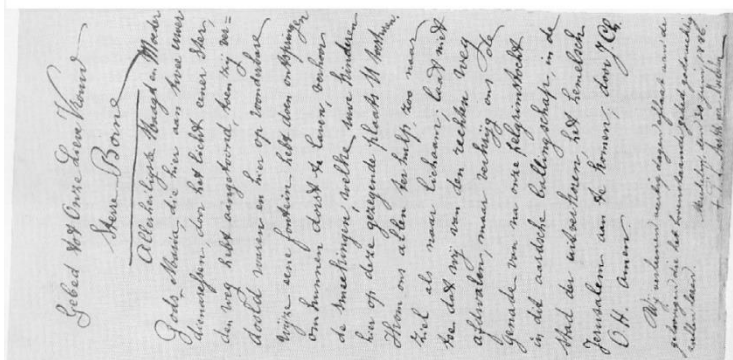 Gebed tot Onze Lieve Vrouw
Sterre Borne
Allerheiligste Maagd en Moeder
Gods, Maria, die hier aan twee uwer
dienaressen, door het licht eener ster,
den weg hebt aangetoond, toen zij ver=
doold waren en hier op wonderbare
wijze eene fontein hebt doen ontspringen
om hunnen dorst te laven, verhoor
de smeekingen, welke uwe kinderen
hier op deze gezegende plaats U toesturen.
Kom ons allen ter hulp zoo naar
ziel als naar lichaam; laat niet
toe dat wij van den rechten weg
afdwalen, maar verkrijg ons de
Genade van na onze pelgrimstocht
in dit aardsche ballingschap, in de
stad der uitverkoren, het hemelsch
Jerusalem aan te komen; door J. Ch.
O. H. amen
Wij verleenen veertig dagen aflaat aan de
geloovigen die het bovenstaande gebed godvruchtig
zullen lezen.
Juni, 1886.